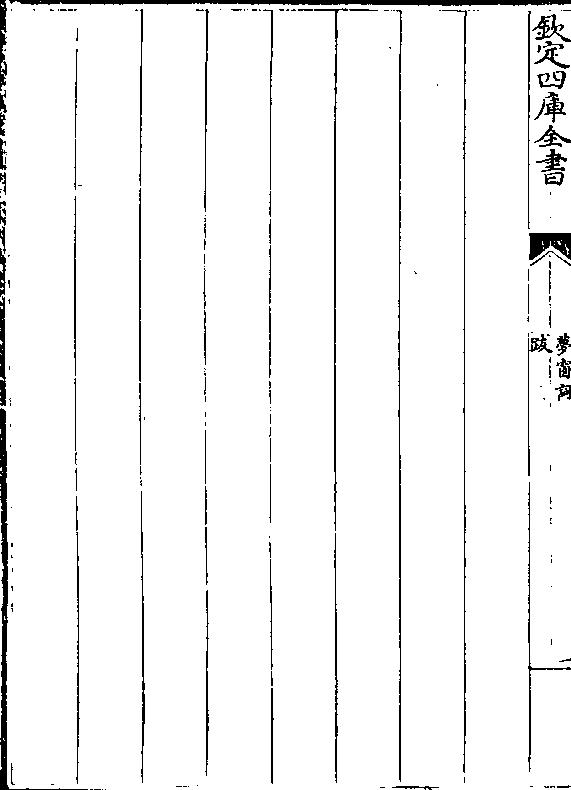 欽定四庫全書
夢窗詞
跋